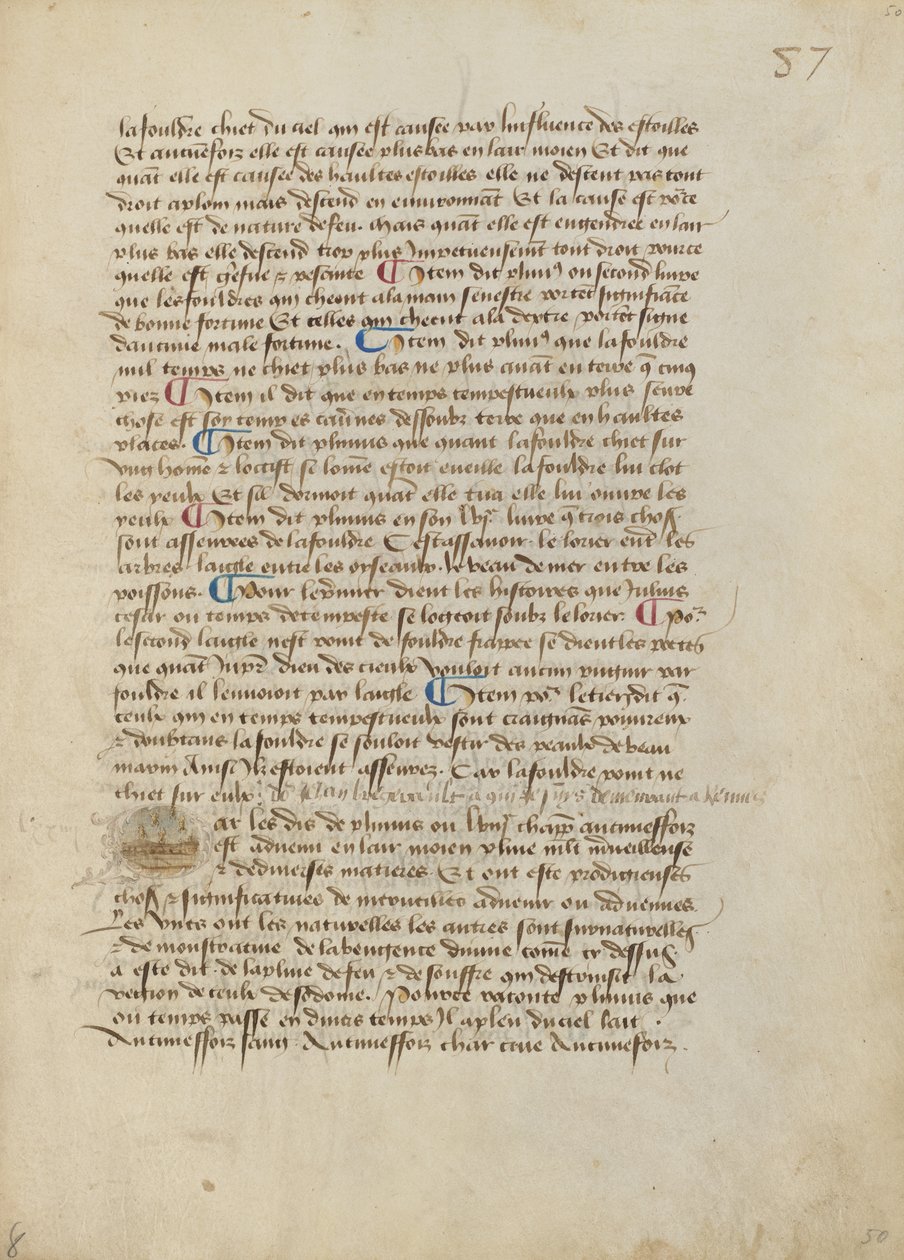 50
57
la fouldre chiet du ciel qui est causee par linfluence des estoilles
Et aucunefoiz elle est causee plus bas en lair moien Et dit que
quāt elle est causee des haultes estoilles elle ne descent pas tout
droit aplom mais descend en environnāt Et la cause est po͛ce
quelle est de nature de feu. Mais quāt elle est engendree en lair
plus bas elle descend trop plus Impetueusem̄t tout droit pource
quelle est griefue ⁊ pesante ¶ Item dit plini⁹ ou second livre
que les fouldres qui cheent a la main senestre portēt signifiāce
de bonne fortune Et celles qui cheent a la dextre portēt signe
daucune male fortune. ¶ Item dit plini⁹ que la fouldre
nul temps ne chiet plus bas ne plus auāt en terre q̄ cinq
piez ¶ Item il dit que en temps tempestueulx plus seure
chose est soy temp es cav̄nes dessoubz terre que en haultes
places. ¶ Item dit plinius que quant la fouldre chiet sur
ung hom̄e ⁊ loccist se lom̄e estoit eueille la fouldre lui clot
les yeulx Et sil dormoit quāt elle tua elle lui ouvre les
yeulx ¶ Item dit plinius en son livre q̄ trois chos͛
sont asseurees de la fouldre Cestassavoir. le lorier ent͛ les
arbres laigle entre les oyseaux. le veau de mer entre les
poissons. ¶ Pour le p̄mier dient les histoires que Julius
cesar ou temps de tempeste se logeoit soubz le lorier. ¶ Po͛
le second laigle nest point de fouldre frappee se dient les poetes
que quāt Jup͛ dieu des cieulx vouloit aucun pugnir par
fouldre il lenvoioit par laigle ¶ Item po͛ le tiers dit q̄
ceulx qui en temps tempestueulx sont craignās pououreux
⁊ doubtans la fouldre se souloit vestir des peaulx de veau
marin Ainsi Ilz estoient asseurez. Car la fouldre point ne
chiet sur eulx. de Jean a qui je suis demeurant a Rennes
ar les dis de plinius ou chapp͛ aucuneffoiz
est advenu en lair moien pluie ml̄t m̄veilleuse
⁊ de diverses matieres. Et ont este prodigieuses
chos͛ ⁊ significatives de merveilles advenir ou advenues.
Les unes ont les naturelles les autres sont surnaturelles
⁊ demonstrative de la vengence divine com̄e cy dessus
a este dit. de la pluie de feu ⁊ de souffre qui destruisit la
region de ceulx de sodome. Pource raconte plinius que
ou temps passe en divers temps Il a pleu du ciel lait.
Aucuneffoiz sang. Aucuneffoiz char crue Aucunefoiz.
8
50